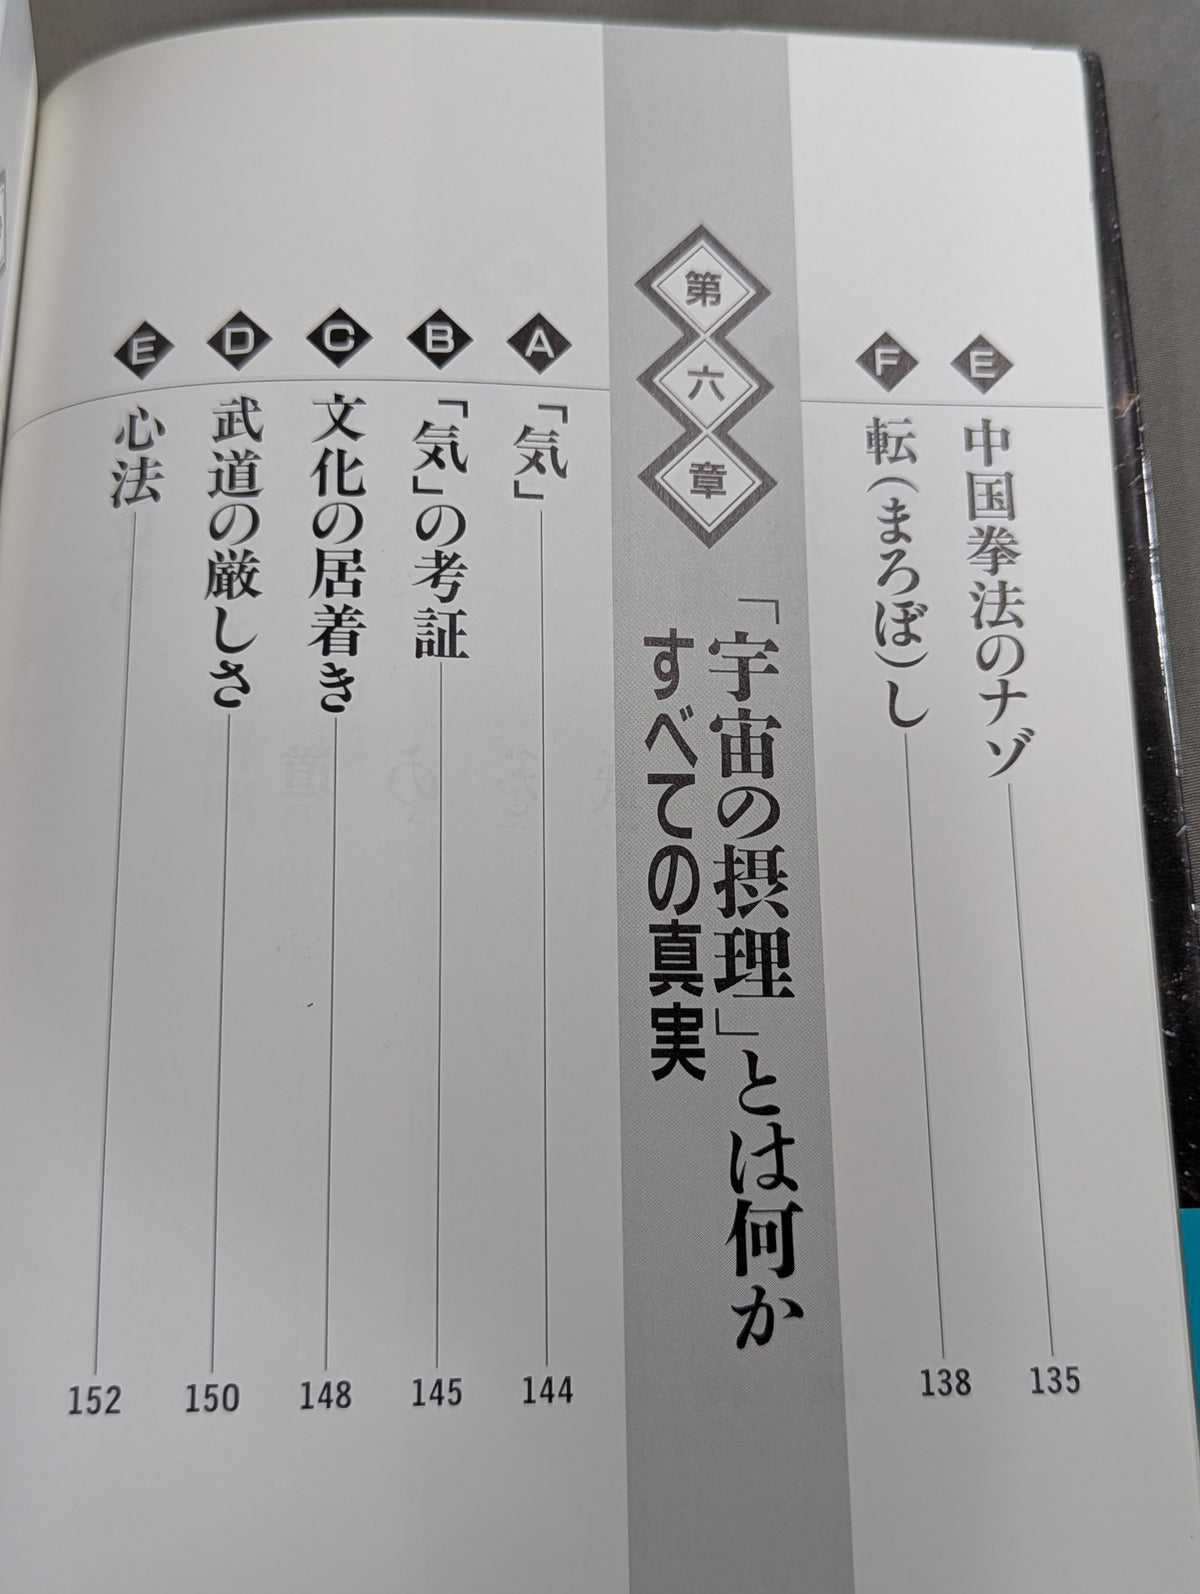 E 中国拳法のナゾ 135
F 転(まろぼ)し 138
第六章
「宇宙の摂理」とは何か
すべての真実
A 「気」 144
B 「気」の考証 145
C 文化の居着き 148
D 武道の厳しさ 150
E 心法 152